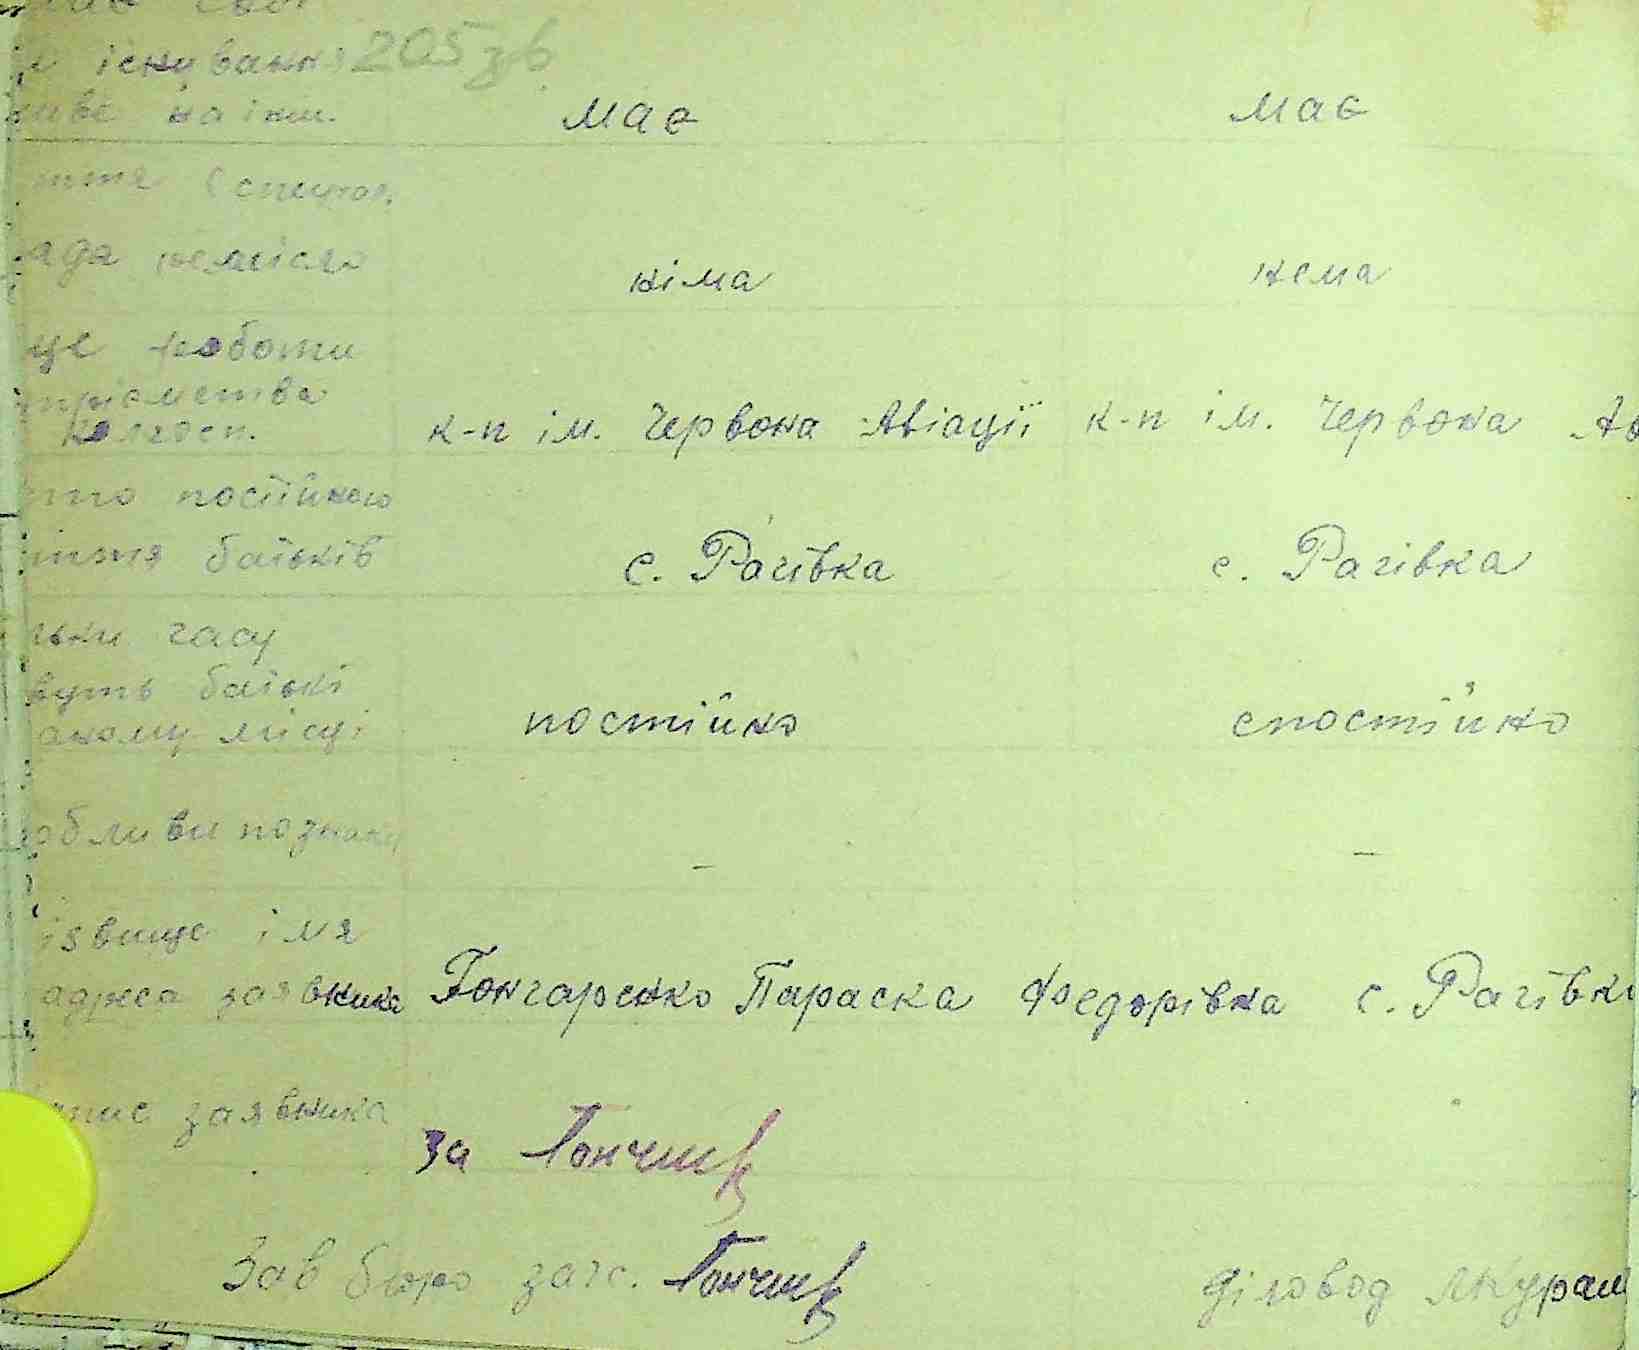 існування 205 зв
живе на їни. має має
ття (спеціал.
ада ремісло
кіма нема
це роботи
приємства
колгосп. к-п ім. Червона Авіації к-п ім. Червона Ав
постійного
ття батьків с. Рагівка с. Рагівка
льки часу
вуть батькі
аному місці постійно спостійно
обливи познаки - -
ізвище імя
адреса заявника Гончаренко Параска Федорівна с. Рагівка
пис заявника
за Гончик
Зав бюро загс. Гончик діловод